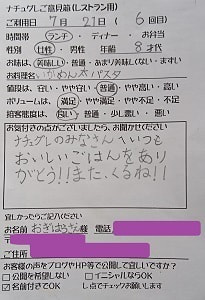 ナチュグレご意見箱(レストラン用)
ご利用日 7月21日(6回目)
時間帯 ランチ・ディナー・お弁当
性別 男性・女性 年齢 8才代
お味は、美味しい・普通・あまり美味しくない・まずい
お料理名 いかめんたパスタ
値段は、安い・やや安い・普通・やや高い・高い
ボリュームは、満足・やや満足・やや不足・不足
接客態度は、良い・普通・少し悪い・悪い
お気付きの点がございましたら、お聞かせください
ナチュグレのみなさんへいつも
おいしいごはんをあり
がとう!!また、くるね!!
宜しかったらご記入ください
お名前 おぎはらさん様 電話
ご住所
お客様の声をブログやHP等で公開して宜しいですか?
□公開を希望しない □イニシャルならOK
☑名前付きでOK し点でチェックお願いします